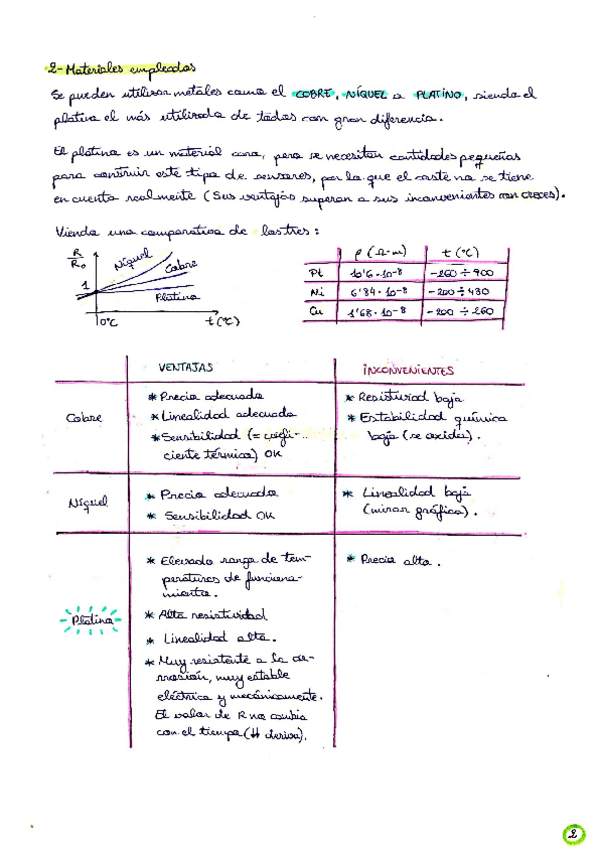 2- Materiales empleados
Se pueden utilizar metales como el COBRE, NÍQUEL o PLATINO, siendo el
platino el más utilizado de todos con gran diferencia.
El platino es un material caro, pero se necesitan cantidades pequeñas
para construir este tipo de sensores, por lo que el coste no se tiene
en cuenta realmente (Sus ventajas superan a sus inconvenientes con creces).
Viendo una comparativa de los tres:
R/R₀
1
Níquel
Cobre
Platino
0°C
t(°C)
ρ (Ω·m) t (°C)
Pt 10'6·10⁻⁸ -260 ÷ 900
Ni 6'84·10⁻⁸ -200 ÷ 430
Cu 1'68·10⁻⁸ -200 ÷ 260
VENTAJAS INCONVENIENTES
Cobre
* Precio adecuado
* Linealidad adecuada
* Sensibilidad (= coefi-
ciente térmico) OK
* Resistividad baja
* Estabilidad química
baja (se oxida).
Níquel
* Precio adecuado
* Sensibilidad OK
* Linealidad baja
(mirar gráfica).
Platino
* Elevado rango de tem-
peraturas de funciona-
miento.
* Alta resistividad
* Linealidad alta.
* Muy resistente a la co-
rrosión, muy estable
eléctrica y mecánicamente.
El valor de R no cambia
con el tiempo (∄ deriva).
* Precio alto.
2